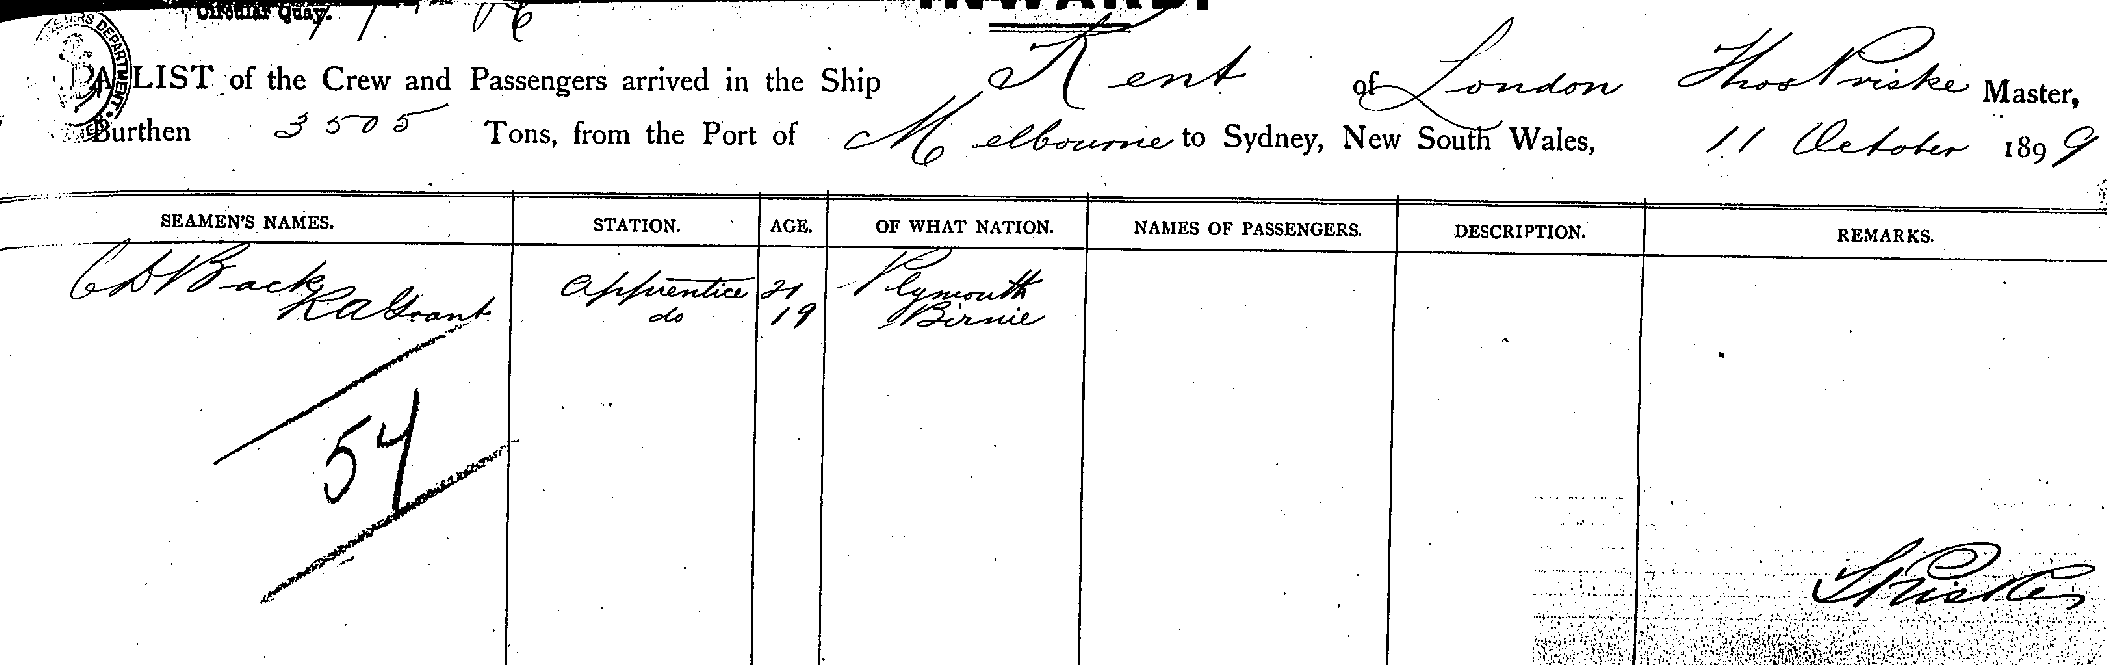 Circular Quay.
INWARD.
A LIST of the Crew and Passengers arrived in the Ship Kent of London Thos Priske Master,
Burthen 3505 Tons, from the Port of Melbourne to Sydney, New South Wales, 11 October 1899
SEAMEN'S NAMES. STATION. AGE. OF WHAT NATION. NAMES OF PASSENGERS. DESCRIPTION. REMARKS.
C D Back Apprentice 21 Plymouth
R A Grant do 19 Birnie
54
TPriske